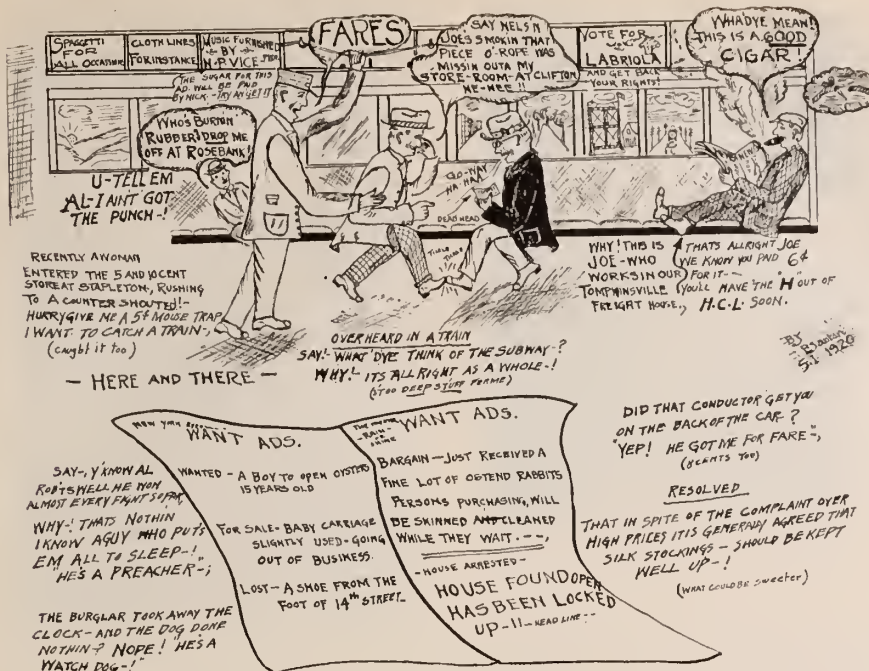 SPAGGETTI
FOR
ALL OCCATIONS
CLOTH LINES
FOR INSTANCE
MUSIC FURNISHED
- BY -
N.P. VICE
(THE SUGAR FOR THIS
AD. WILL BE PAID
BY NICK - TRY AN GET IT
FARES
SAY NELS'N
JOE'S SMOKIN THAT
PIECE O'-ROPE WAS
MISSIN OUTA MY
STORE-ROOM-AT CLIFTON
HE-HEE !!
VOTE FOR
LABRIOLA
AND GET BACK
YOUR RIGHTS!
WHA'DYE MEAN!
THIS IS A GOOD
CIGAR!
WHO'S BURNIN
RUBBER! DROP ME
OFF AT ROSEBANK!
U-TELL EM
AL-I AINT GOT
THE PUNCH-!
GO-WAY
HA-HAA
DEAD HEAD
NEWS
TICKLE THESE
RECENTLY A WOMAN
ENTERED THE 5 AND 10 CENT
STORE AT STAPLETON, RUSHING
TO A COUNTER SHOUTED!-
HURRY GIVE ME A 5¢ MOUSE TRAP
I WANT TO CATCH A TRAIN-,
(Caught it too)
WHY! THIS IS
JOE-WHO
WORKS IN OUR
TOMPKINSVILLE
FREIGHT HOUSE,
THATS ALLRIGHT JOE
(WE KNOW YOU PAID 6¢
FOR IT--
(YOU'LL HAVE THE "H" OUT OF
H.C.L. SOON.
OVERHEARD IN A TRAIN
SAY!- WHAT 'DYE THINK OF THE SUBWAY-?
WHY!- ITS ALL RIGHT AS A WHOLE-!
('STOO DEEP STUFF FORME)
S.I. 1920
- HERE AND THERE -
SAY-, Y'KNOW AL
ROBTSWELL HE WON
ALMOST EVERY FIGHT SO FAR,
WHY-! THATS NOTHIN'
I KNOW A GUY WHO PUT'S
EM ALL TO SLEEP-!
"HE'S A PREACHER-;
THE BURGLAR TOOK AWAY THE
CLOCK-AND THE DOG DONE
NOTHIN-? NOPE! "HE'S A
WATCH DOG-!"
NEW YORK
WANT ADS.
WANTED - A BOY TO OPEN OYSTERS
15 YEARS OLD
FOR SALE - BABY CARRIAGE
SLIGHTLY USED - GOING
OUT OF BUSINESS.
LOST - A SHOE FROM THE
FOOT OF 14TH STREET-
-RAIN-
OR
SHINE
WANT ADS.
BARGAIN - JUST RECEIVED A
FINE LOT OF OSTEND RABBITS
PERSONS PURCHASING, WILL
BE SKINNED AND CLEANED
WHILE THEY WAIT. --,
-HOUSE ARRESTED-
HOUSE FOUND OPEN
HAS BEEN LOCKED
UP-!!- HEAD LINE--
DID THAT CONDUCTOR GET YOU
ON THE BACK OF THE CAR-?
"YEP! HE GOT ME FOR FARE"-,
(8CENTS TOO)
RESOLVED
THAT IN SPITE OF THE COMPLAINT OVER
HIGH PRICES IT IS GENERALY AGREED THAT
SILK STOCKINGS - SHOULD BE KEPT
WELL UP-!
(WHAT COULD BE SWEETER)